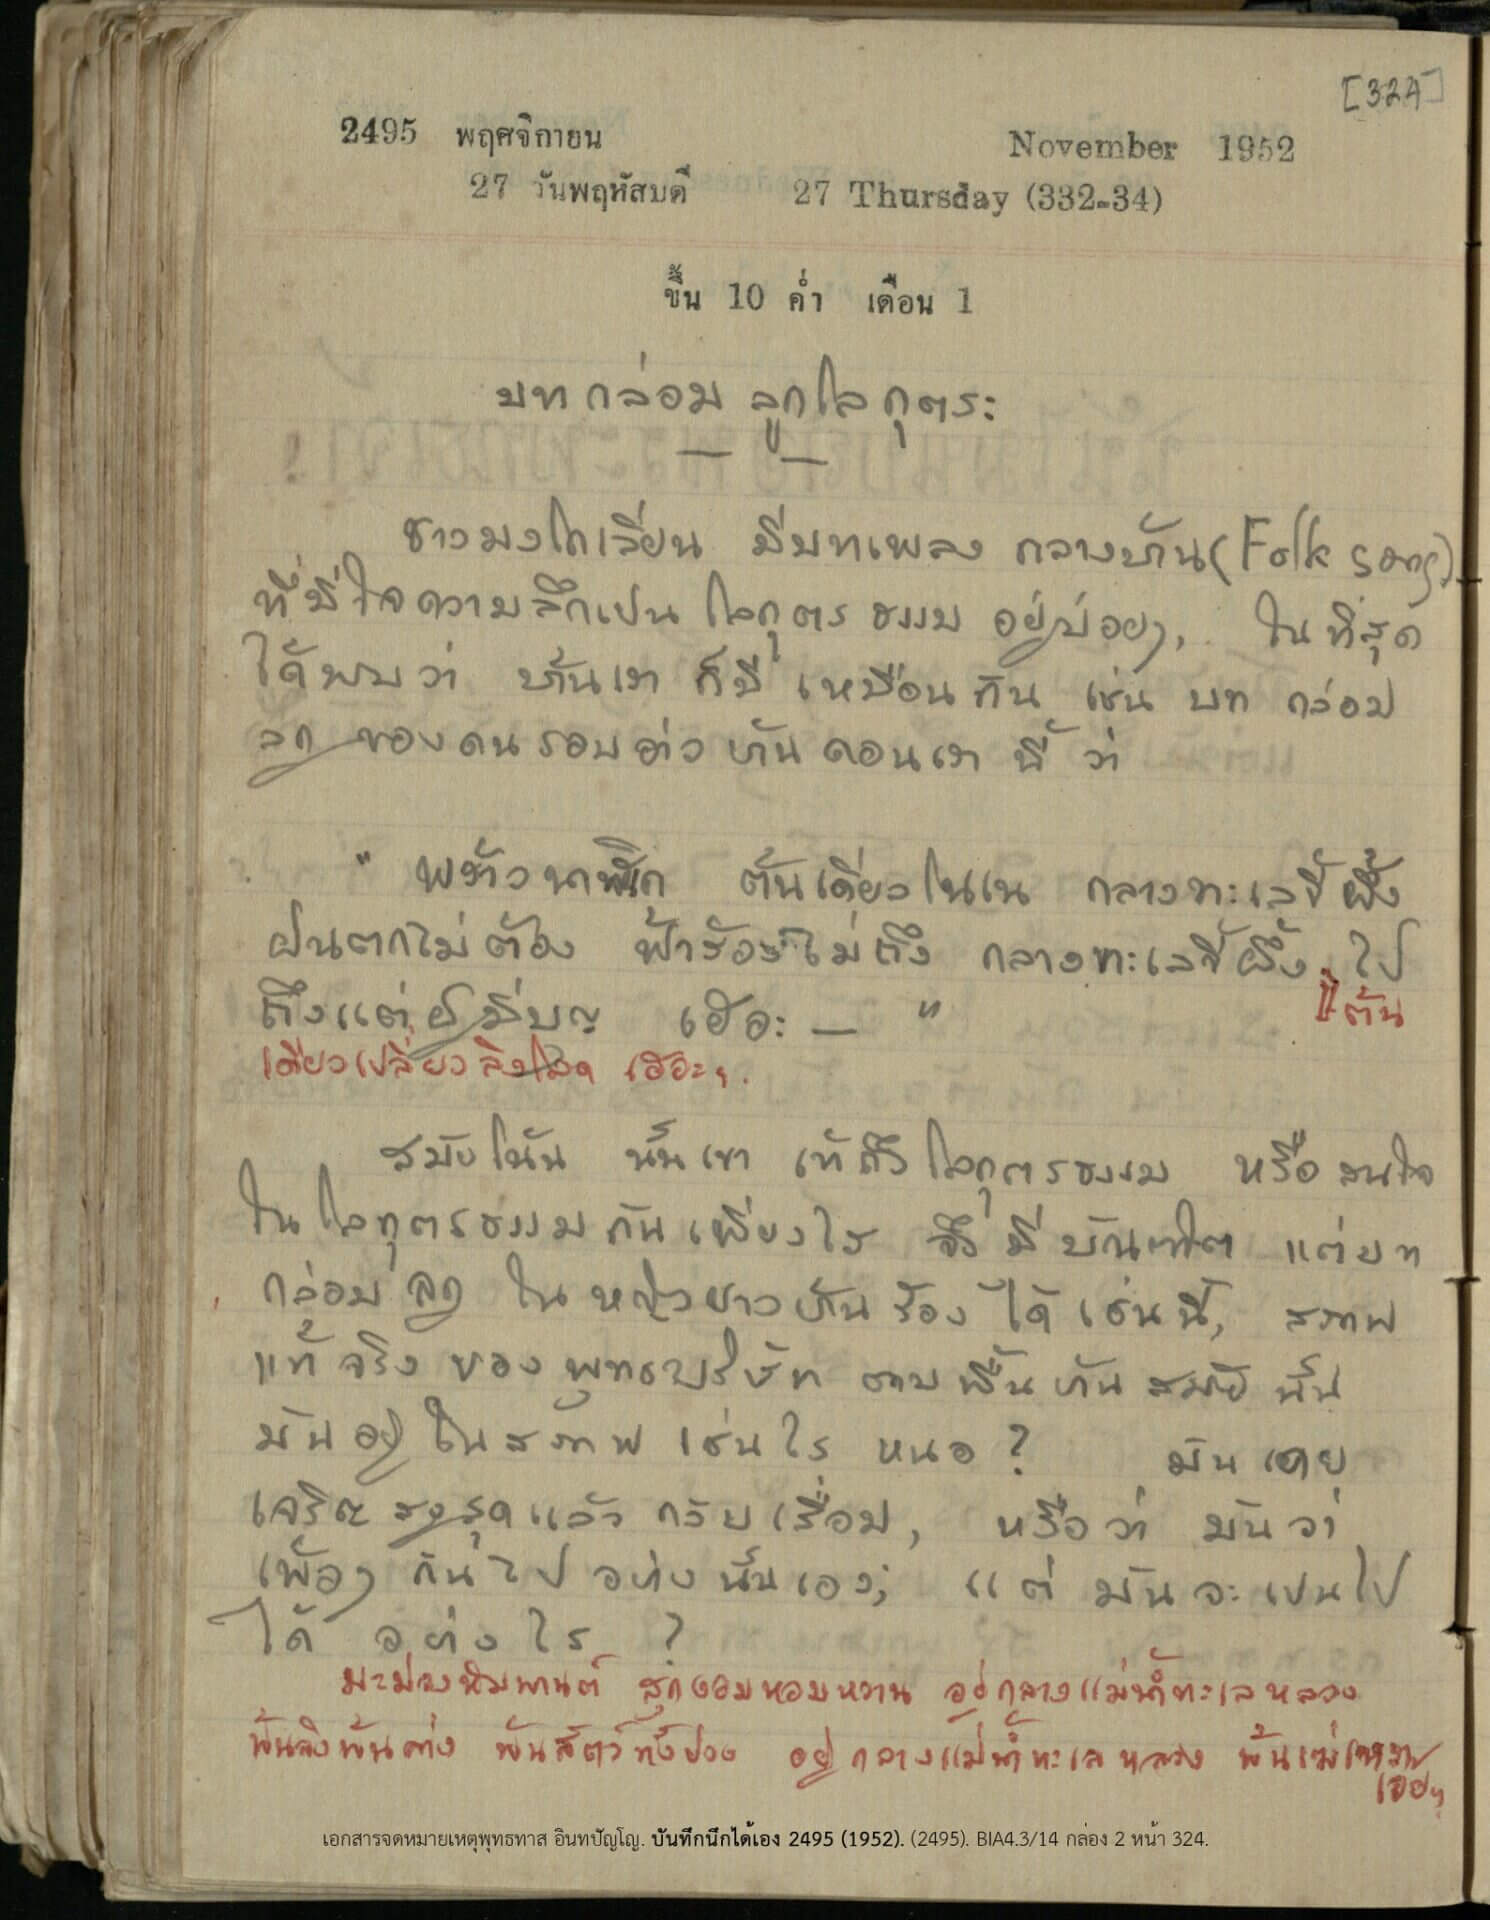 [324]
2495 พฤศจิกายน November 1952
27 วันพฤหัสบดี 27 Thursday (332-34)
ขึ้น 10 ค่ำ เดือน 1
บทกล่อม ลูกโลกุตระ
ชาวมงโกเลียน มีบทเพลง กลางบ้าน (Folk song)
ที่มีใจความลึกเปน โลกุตรธรรม อยู่บ่อยๆ, ในที่สุด
ได้พบว่า บ้านเรา ก็มี เหมือนกัน เช่น บท กล่อม
ลูก ของคนรอบอ่าวบ้านดอนเรา นี้ ว่า
" พร้าวนาฬิเก ต้นเดียวโนเน กลางทะเลขี้ผึ้ง
ฝนตกไม่ต้อง ฟ้าร้องไม่ถึง กลางทะเลขี้ผึ้ง ไป
ถึงแต่ผู้มีบุญ เฮอะ — "
ต้น
เดียวเปลี่ยวลิงโลด เฮอะๆ.
สมัยโน้น นั้นเขา เข้าถึงโลกุตรธรรม หรือ สนใจ
ในโลกุตรธรรมกันเพียงไร จึง มี แต่บท
กล่อมลูก ใน ชาวบ้านร้อง ได้ เช่นนี้, สภาพ
แท้จริง ของ พุทธบริษัท ตามพื้นบ้านสมัยนั้น
มันอยู่ในสภาพ เช่นไร หนอ ? มันเคย
เจริญสูงสุดแล้ว กลับเสื่อม, หรือว่า มันว่า
เพ้อๆ กันไป อย่างนั้นเอง; แต่ มันจะเปนไป
ได้ อย่างไร ?
มะม่วงหิมพานต์ สุกงอมหอมหวาน อยู่กลางแม่น้ำทะเลหลวง
พ้นลิงพ้นค่าง พ้นสัตว์ทั้งปวง อยู่กลางแม่น้ำทะเลหลวง พ้น
เอยๆ
เอกสารจดหมายเหตุพุทธทาส อินทปัญโญ. บันทึกนึกได้เอง 2495 (1952). (2495). BIA4.3/14 กล่อง 2 หน้า 324.